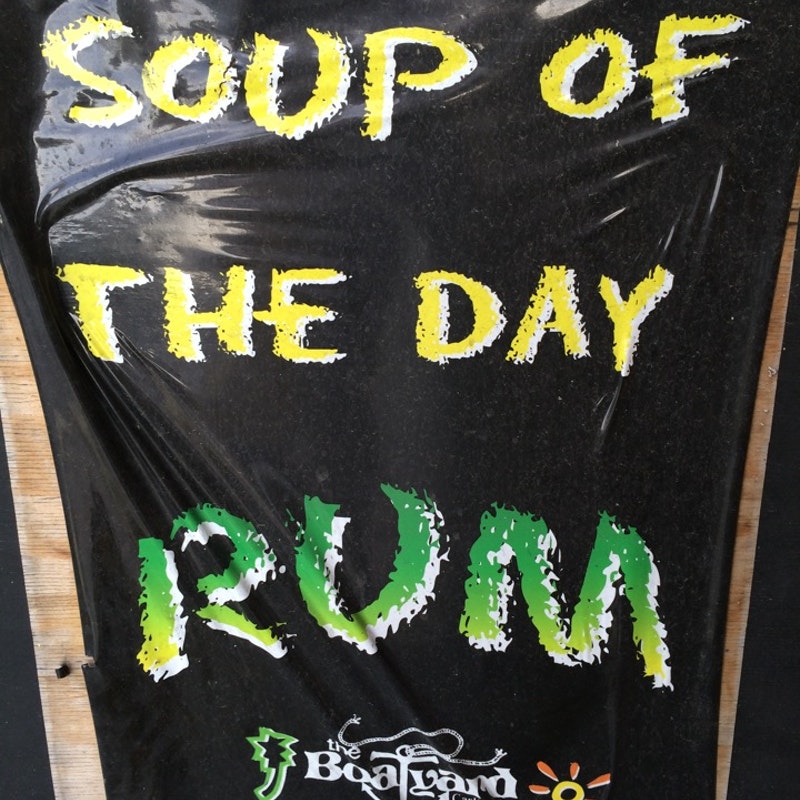 SOUP OF
THE DAY
RUM
the
Boatyard